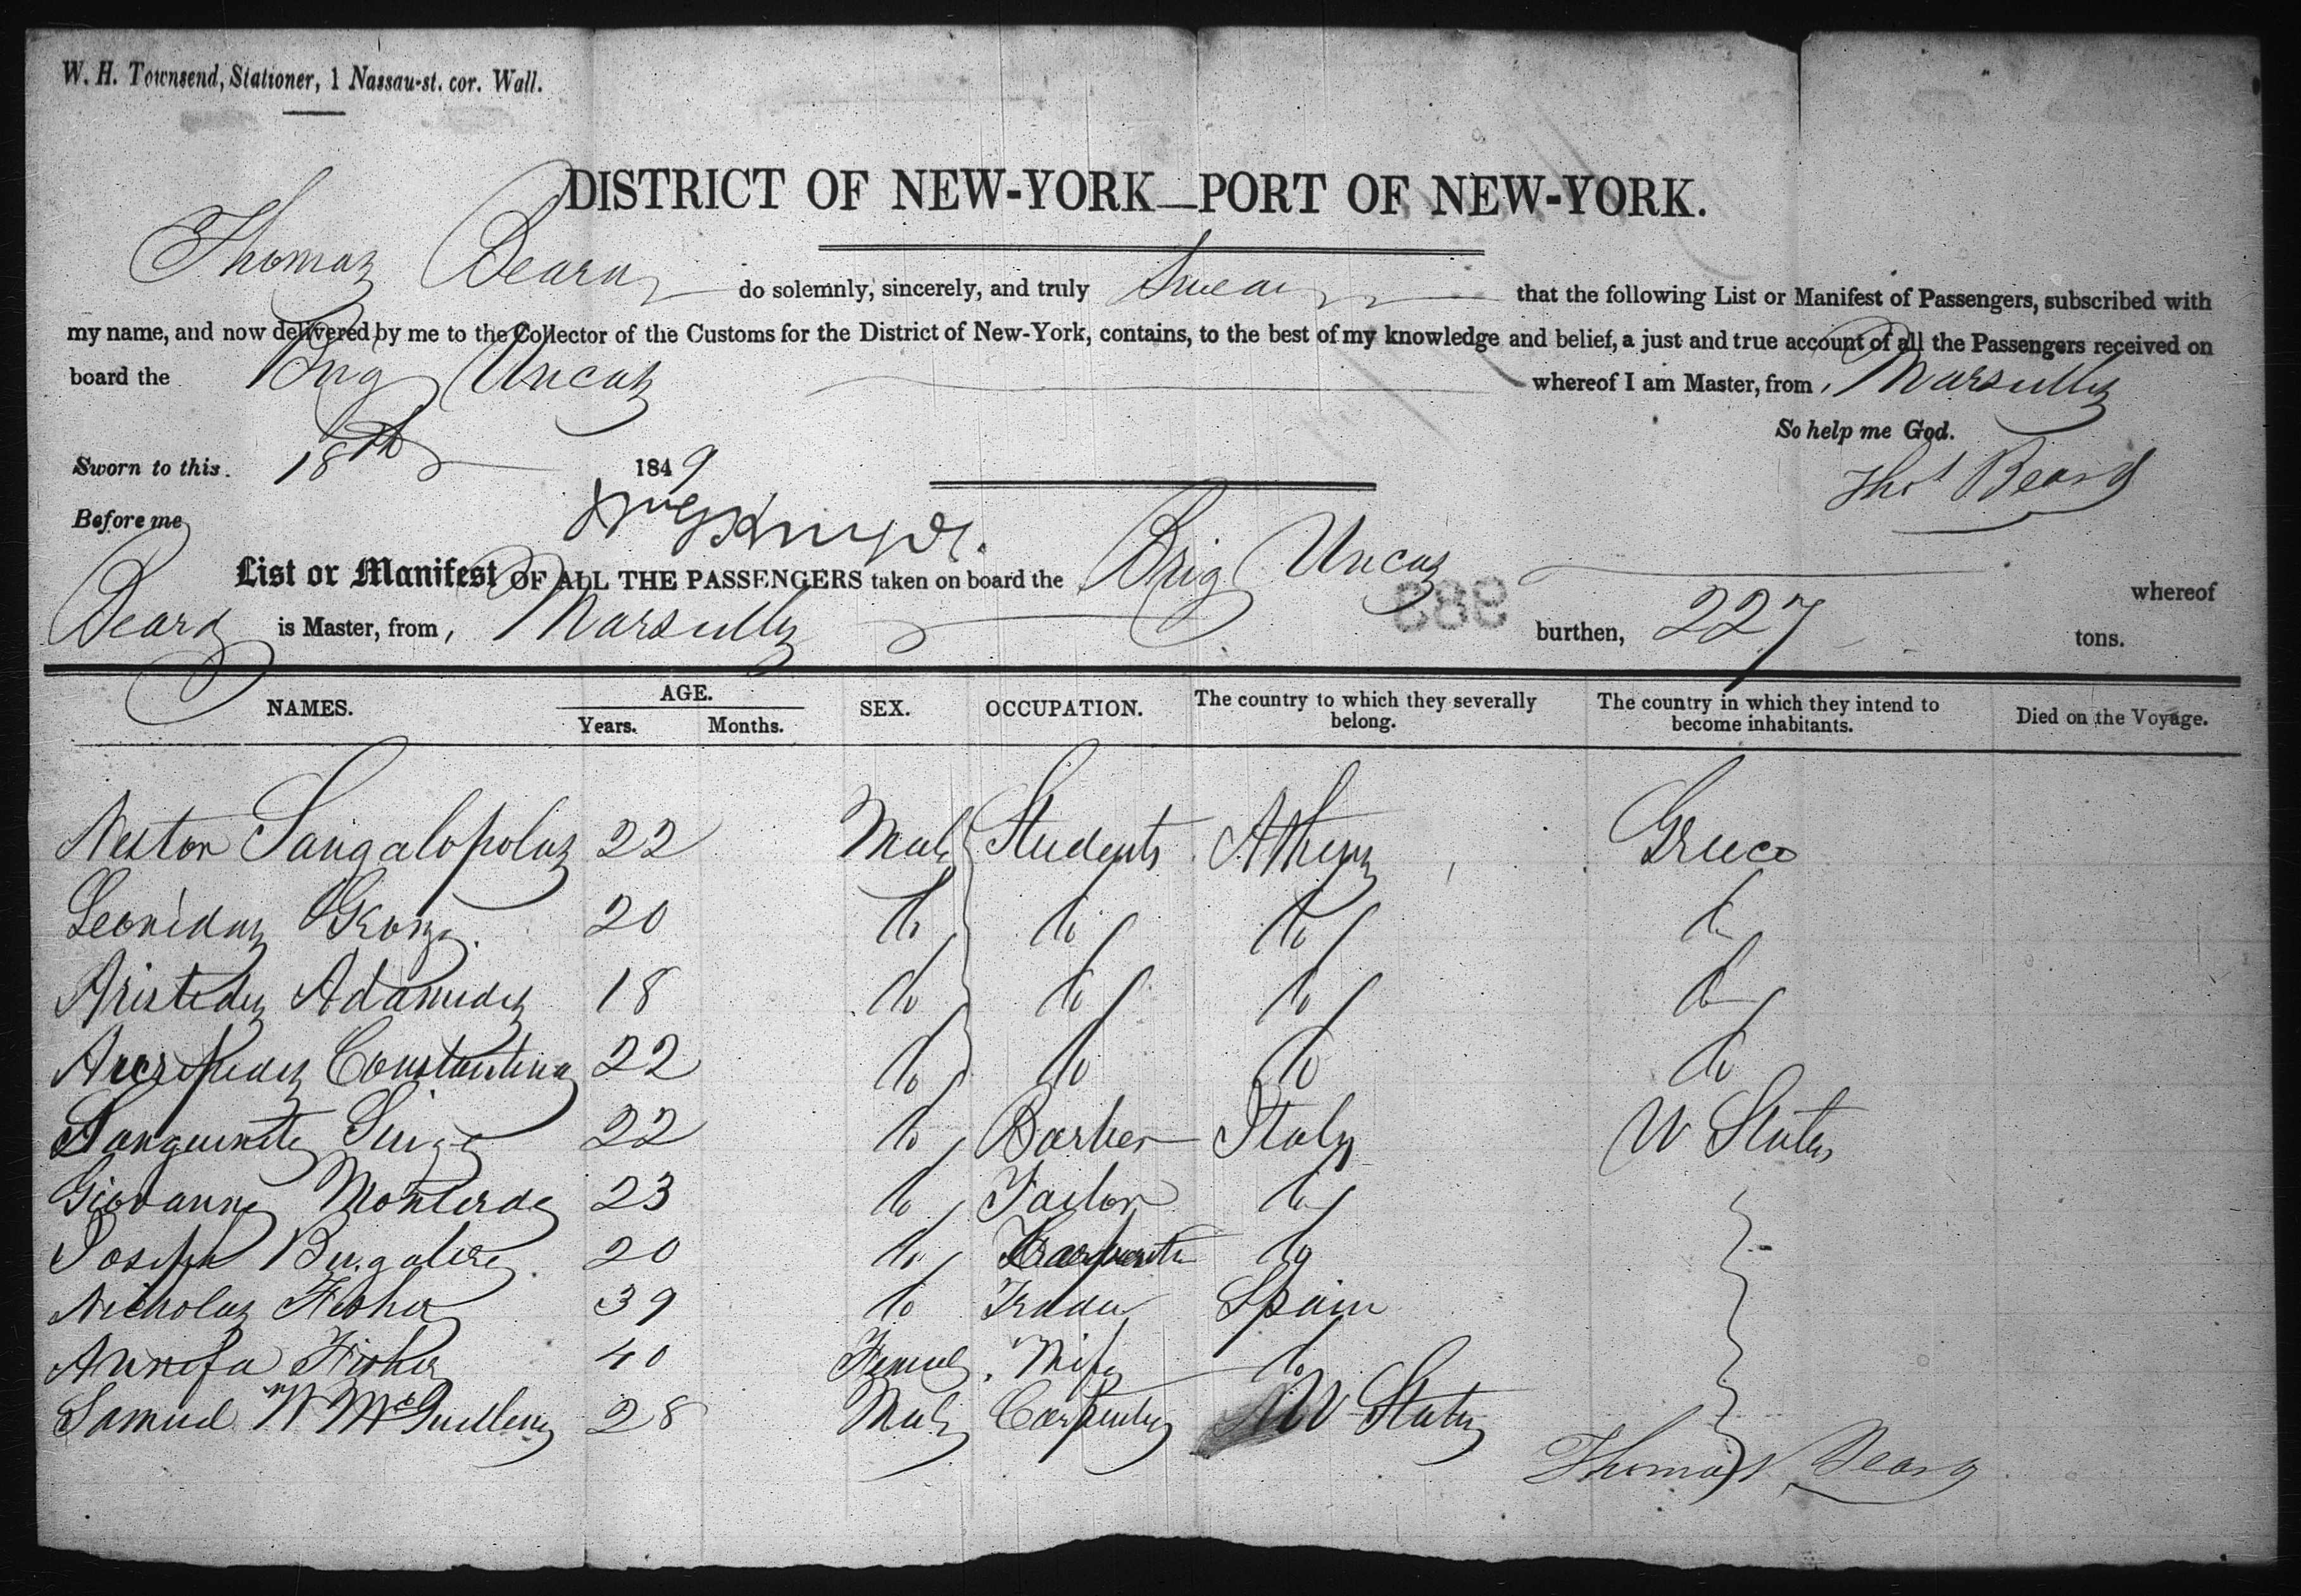 W. H. Townsend, Stationer, 1 Nassau-st. cor. Wall.
DISTRICT OF NEW-YORK—PORT OF NEW-YORK.
Thomas Beard do solemnly, sincerely, and truly Swear that the following List or Manifest of Passengers, subscribed with
my name, and now delivered by me to the Collector of the Customs for the District of New-York, contains, to the best of my knowledge and belief, a just and true account of all the Passengers received on
board the Brig Uncas whereof I am Master, from Marseilles
So help me God.
Sworn to this 18th 1849 Thos Beard
Before me
List or Manifest OF ALL THE PASSENGERS taken on board the Brig Uncas whereof
888
Beard is Master, from Marseilles burthen, 227 tons.
NAMES. AGE. Years. Months. SEX. OCCUPATION. The country to which they severally belong. The country in which they intend to become inhabitants. Died on the Voyage.
Nestor Sangalopolus 22 Male Students Athens Greece
Leonidas 20 Do Do Do Do
Aristides Adamides 18 Do Do Do Do
Constantine 22 Do Do Do Do
22 Do Barber Italy U States
Giovanni Monterde 23 Do Tailor Do
Joseph 20 Do Do
Nicholas Fisher 39 Do Trader Spain
Fisher 40 Female Wife Do
Samuel W 28 Male Carpenter U States
Thomas Beard